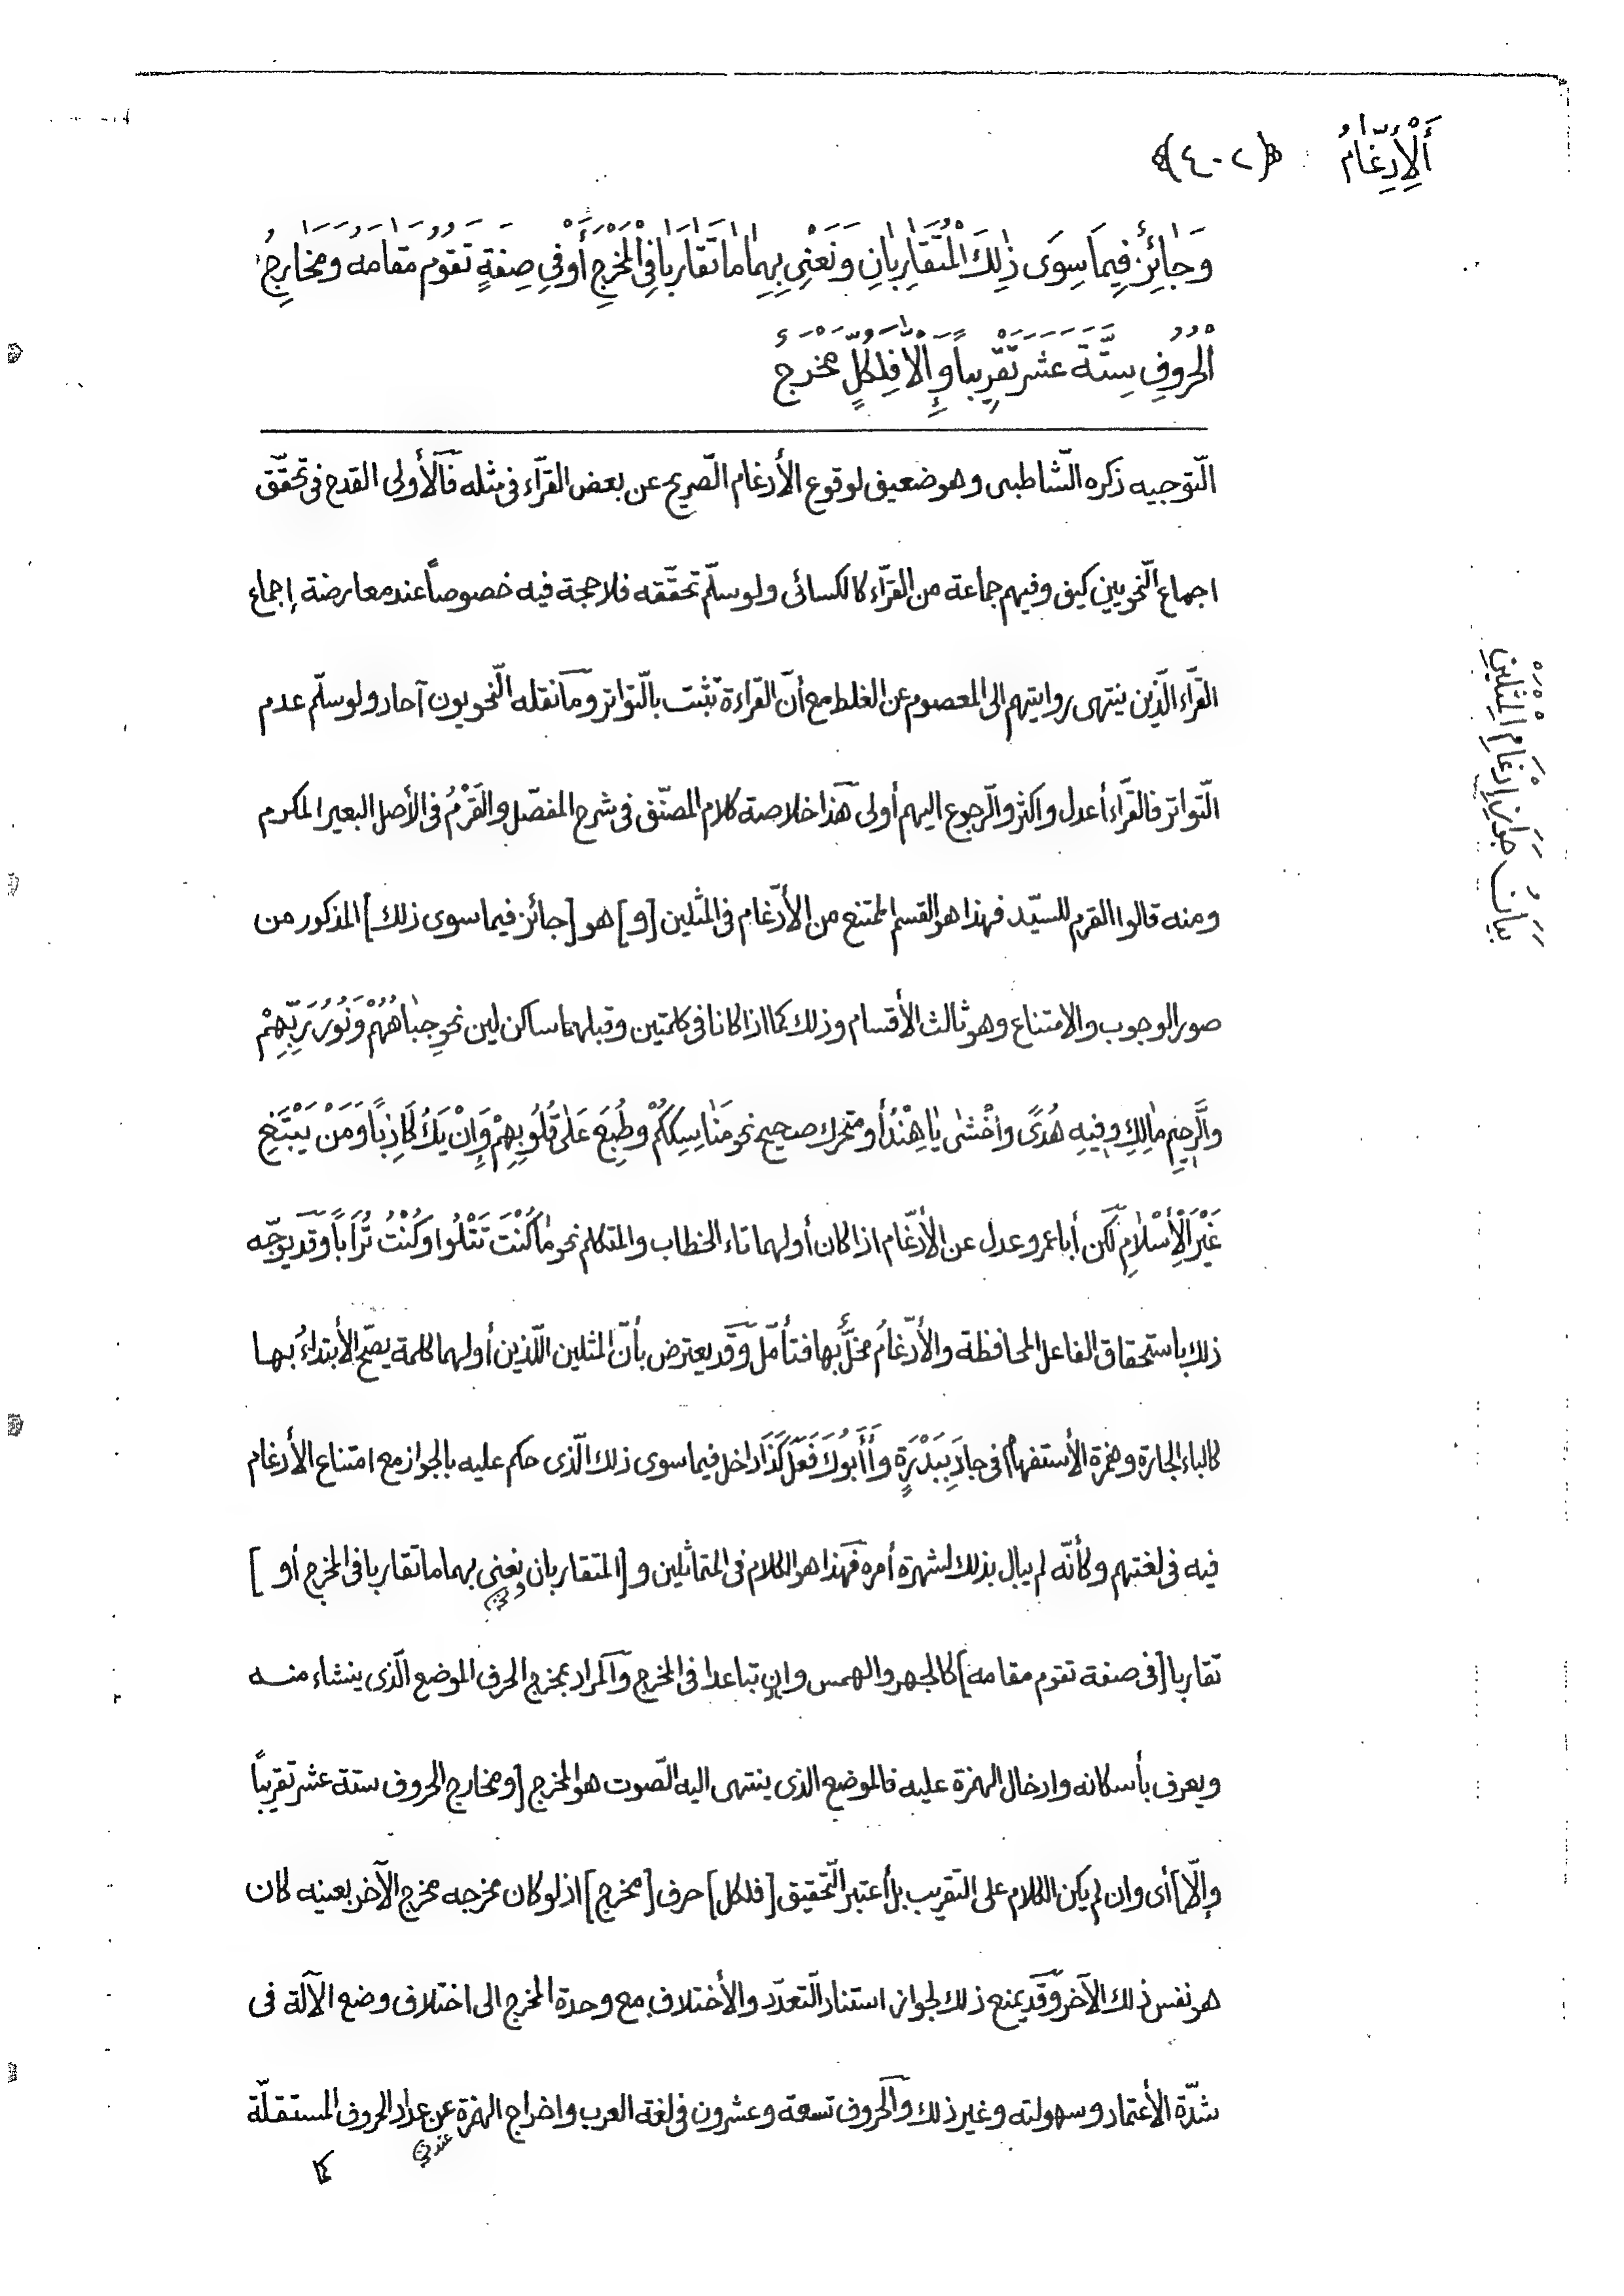 أَلْأِدِّغَامُ ﴿٤٠٢﴾
وَجَائِزٌ فِيمَا سِوَى ذٰلِكَ الْمُتَقَارِبَانِ وَنَعْنِي بِهِمَا مَا تَقَارَبَا فِي الْمَخْرَجِ أَوْ فِي صِفَةٍ تَقُومُ مَقَامَهُ وَمَخَارِجُ
الْحُرُوفِ سِتَّةَ عَشَرَ تَقْرِيباً وَإِلَّا فَلِكُلٍّ مَخْرَجٌ
بَيَانُ جَوَازِ إِدْغَامِ الْمِثْلَيْنِ
التّوجيه ذكره الشّاطبى وهو ضعيف لوقوع الأدغام الصّريح عن بعض القرّاء فى مثله فالأولى القدح فى تحقّق
اجماع النّحويين كيف وفيهم جماعة من القرّاء كالكسائى ولو سلّم تحقّقه فلا حجة فيه خصوصاً عند معارضة إجماع
القرّاء الّذين ينتهى روايتهم الى المعصوم عن الغلط مع أنّ القراءة تثبت بالتّواتر وما نقله النّحويون آحاد ولو سلّم عدم
التّواتر فالقرّاء أعدل واكثر والرّجوع اليهم أولى هذا خلاصة كلام المصنّف فى شرح المفصّل والقَرْمُ فى الأصل البعير المكرم
ومنه قالوا القرم للسيّد فهذا هو القسم الممتنع من الأدّغام فى المثلين [و] هو [جائز فيما سوى ذلك] المذكور من
صور الوجوب والامتناع وهو ثالث الأقسام وذلك كما اذا كانا فى كلمتين وقبلهما ساكن لين نحو جِبَاهُهُمْ وَنُورُ رَبِّهِمْ
والرَّحِيمِ مَالِكِ وفِيهِ هُدًى وأخْشَىْ يَا هِنْدُ أو متحرك صحيح نحو مَنَاسِكَكُمْ وَطُبِعَ عَلَىٰ قُلُوبِهِمْ وَإِنْ يَكُ كَاذِبًا وَمَنْ يَبْتَغِ
غَيْرَ الْأِسْلَامِ لكن أبا عمرو عدل عن الأدّغام اذا كان أولهما تاء الخطاب والمتكلم نحو مَا كُنْتَ تَتْلُوا وَكُنْتُ تُرَاباً وقد يوجّه
ذلك باستحقاق الفاعل المحافظة والأدّغامُ مخلٌّ بها فتأمّل وقد يعترض بأنّ المثلين اللّذين أولهما كلمة يصّح الأبتداءُ بهـا
كالباء الجارة وهمزة الأستفهام فى جادَ بِبَدْرَةٍ وأَأَبُوكَ فَعَلَ كَذَا داخل فيما سوى ذلك الّذى حكم عليه بالجواز مع امتناع الأدغام
فيه فى لغتهم وكأنّه لم يبال بذلك لشهرة أمره فهذا هو الكلام فى المتماثلين و [المتقاربان نعنى بهما ما تقاربا فى المخرج أو ]
تقاربا [فى صفة تقوم مقامه] كالجهر والهمس وان تباعدا فى المخرج والمراد بمخرج الحرف الموضع الّذى ينشاء منـه
ويعرف بأسكانه وادخال الهمزة عليه فالموضع الذى ينتهى اليه الصّوت هو المخرج [ومخارج الحروف ستة عشر تقريباً
وإلّا] أى وان لم يكن الكلام على التقريب بل أعتبر التّحقيق [فلكل] حرف [مخرج] اذ لو كان مخرجه مخرج الآخر بعينه كان
هو نفس ذلك الآخر وقد يمنع ذلك لجواز استناد التّعدّد والأختلاف مع وحدة المخرج الى اختلاف وضع الآلة فى
شدّة الأعتماد وسهولته وغير ذلك والحروف تسعة وعشرون فى لغة العرب واخراج الهمزة عن عداد الحروف المستقلّة
كما